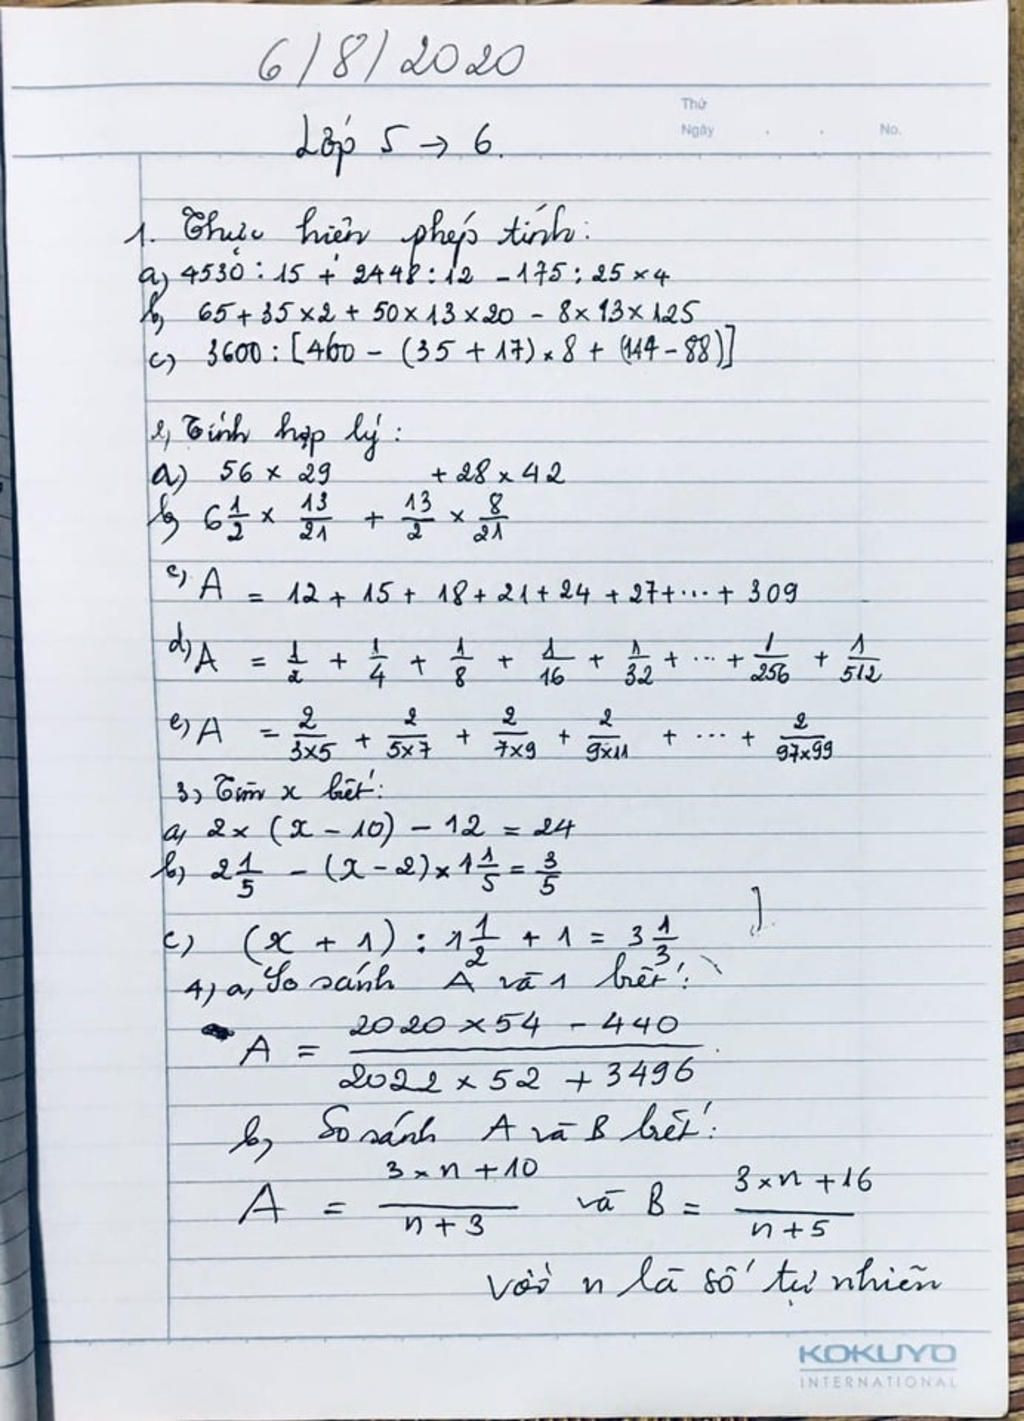 6/8/2020
Thứ
Ngày . . No.
Lớp 5 → 6.
1. Thực hiện phép tính:
a) 4530 : 15 + 2448 : 12 - 175 : 25 × 4
b) 65 + 35 × 2 + 50 × 13 × 20 - 8 × 13 × 125
c) 3600 : [460 - (35 + 17) × 8 + (144 - 88)]
2, Tính hợp lý:
a) 56 × 29 + 28 × 42
b) 6 1/2 × 13/21 + 13/2 × 8/21
c) A = 12 + 15 + 18 + 21 + 24 + 27 + ... + 309
d) A = 1/2 + 1/4 + 1/8 + 1/16 + 1/32 + ... + 1/256 + 1/512
e) A = 2/3×5 + 2/5×7 + 2/7×9 + 2/9×11 + ... + 2/97×99
3, Tìm x biết:
a, 2 × (x - 10) - 12 = 24
b) 2 1/5 - (x - 2) × 1 1/5 = 3/5
c) (x + 1) : 1 1/2 + 1 = 3 1/3
4) a, So sánh A và 1 biết:
A = 2020 × 54 - 440 / 2022 × 52 + 3496
b, So sánh A và B biết:
A = 3 × n + 10 / n + 3 và B = 3 × n + 16 / n + 5
với n là số tự nhiên
KOKUYO
INTERNATIONAL